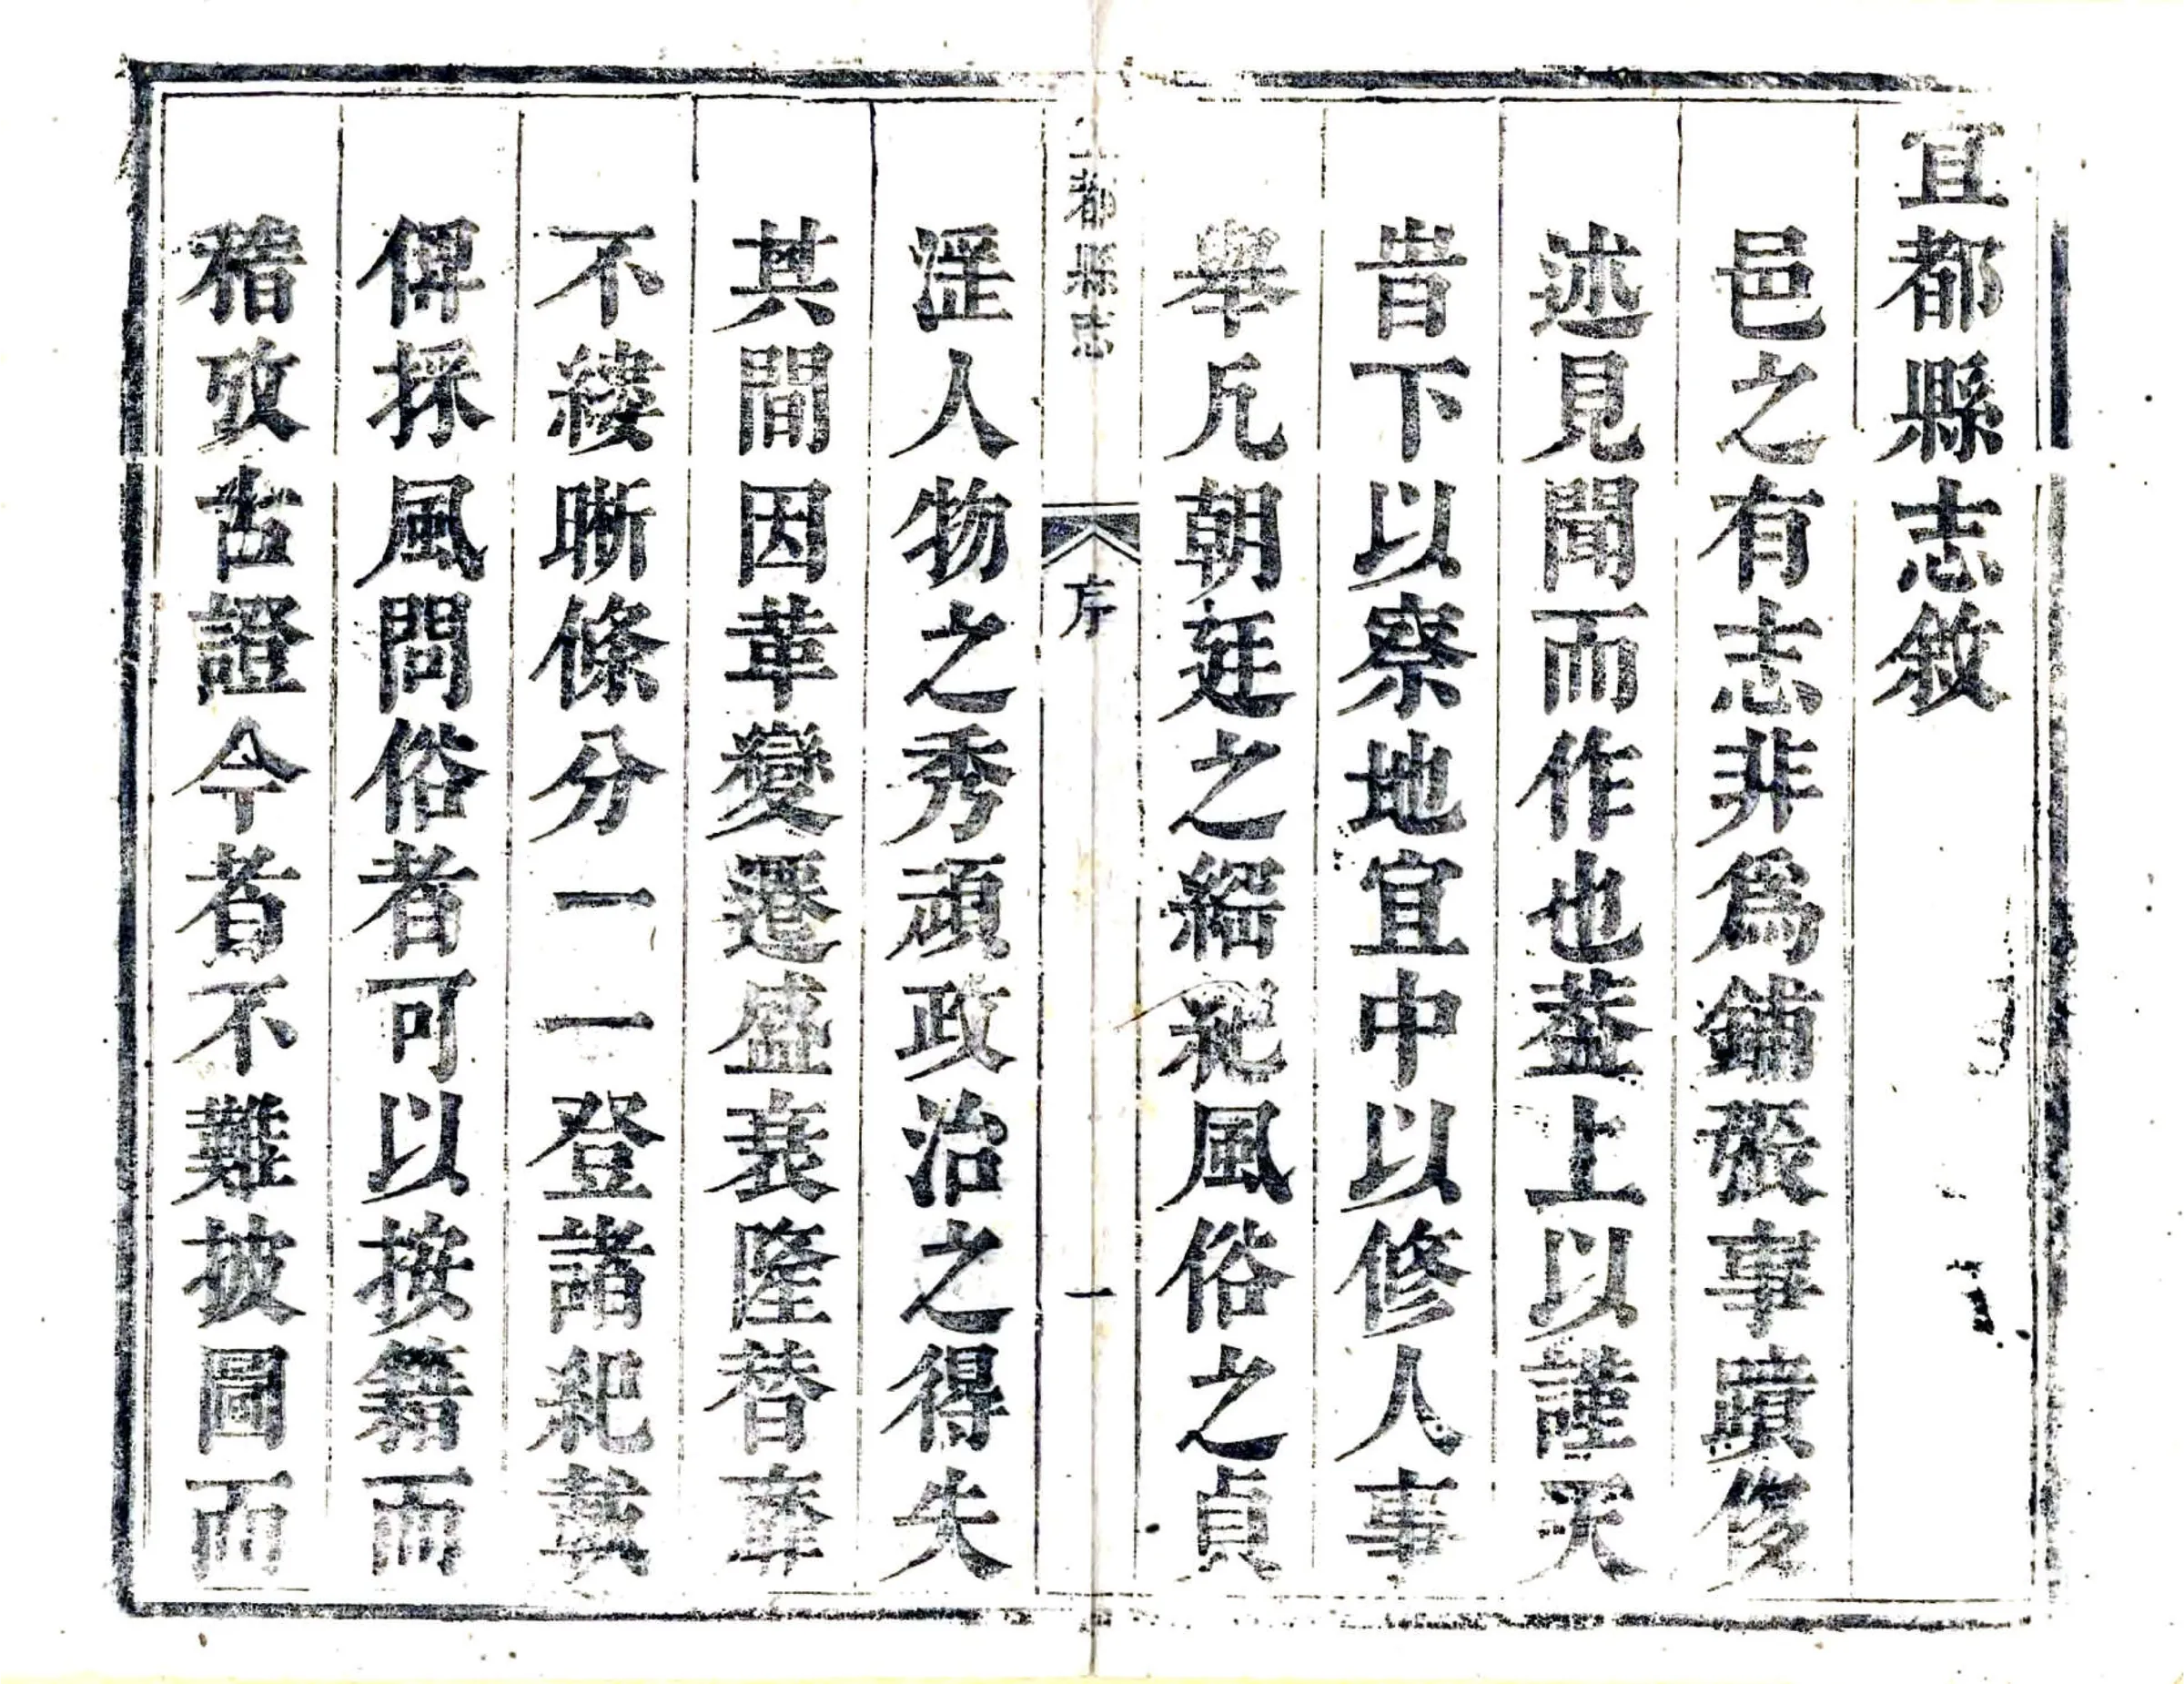 宜都縣志敘
邑之有志非爲鋪張事蹟侈
述見聞而作也葢上以謹天
旹下以察地宜中以修人事
舉凡朝廷之綱紀風俗之貞
宜都縣志
序
一
淫人物之秀頑政治之得失
其間因革變遷盛衰隆替莫
不縷晰條分一一登諸紀載
俾採風問俗者可以按籍而
稽攷古證今者不難披圖而